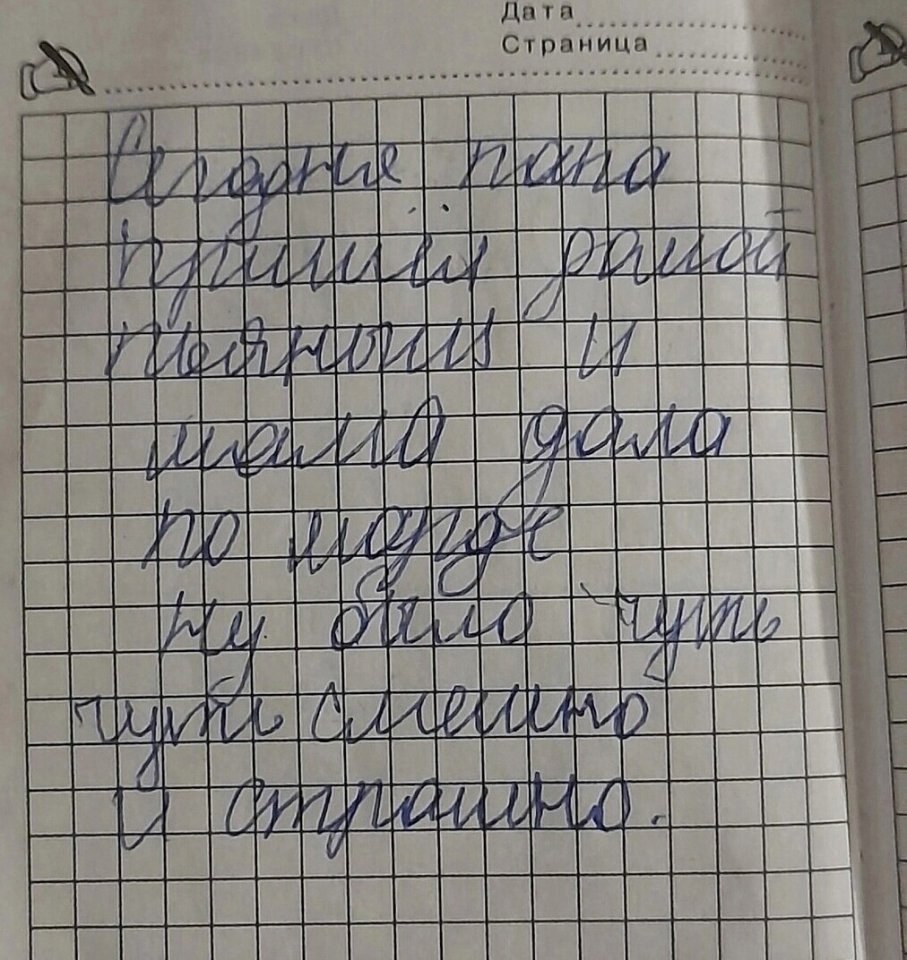 Дата
Страница
Сегодне папа
пришил дамой
пияным и
мама дала
по морде
Ну было чуть
чуть смешно
и страшно.